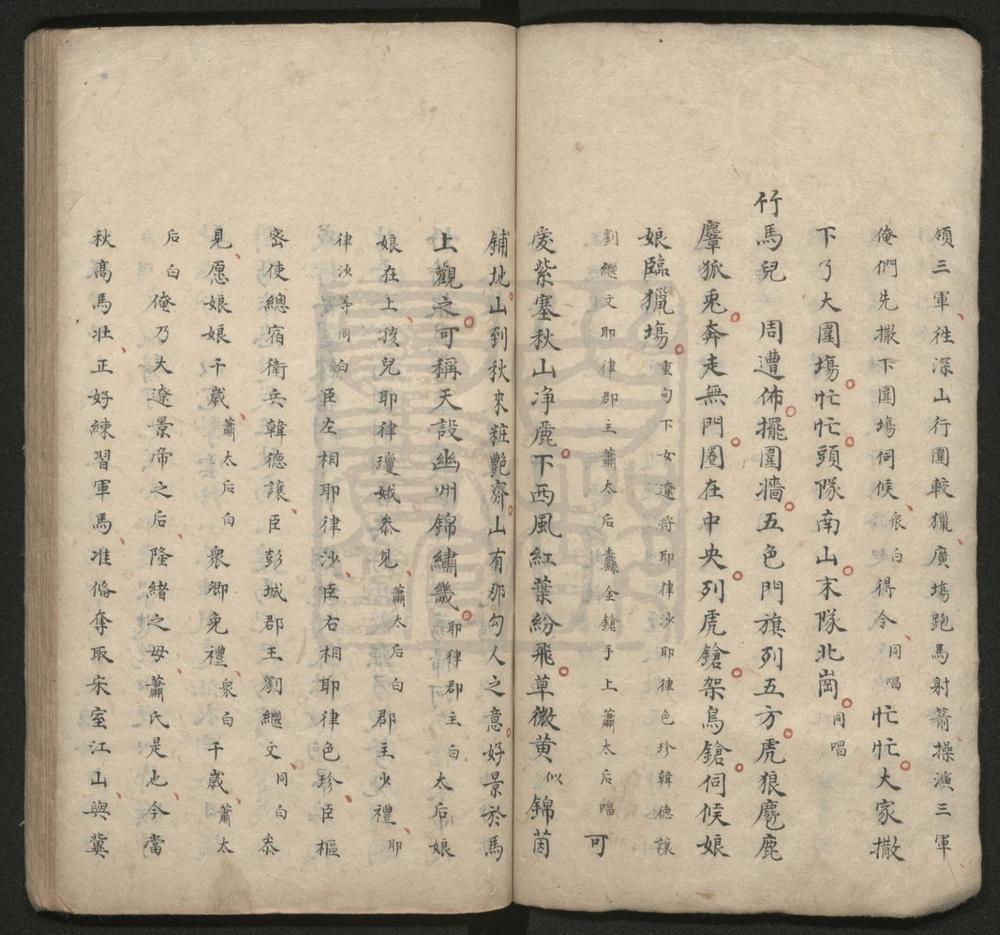 領三軍徃深山行圍較獵廣塲跑馬射箭操演三軍
俺們先撒下圍塲伺候衆白得令同唱忙忙大家撒
下了大圍塲忙忙頭隊南山末隊北崗同唱
竹馬兒 周遭佈擺圍墻五色門旗列五方虎狼麅鹿
麞狐兎奔走無門圈在中央列虎鎗架鳥鎗伺候娘
娘臨獵塲重句下女遼將耶律沙耶律色珍韓德讓
劉繼文耶律郡主蕭太后纛金鎗手上蕭太后唱可
愛紫塞秋山净麗下西風紅葉紛飛草微黄似錦茵
鋪地山到秋來粧艷齋山有那勾人之意好景於馬
上觀之可稱天設幽州錦繡畿耶律郡主白太后娘
娘在上孩兒耶律瓊娥叅見蕭太后白郡主少禮耶
律沙等同白臣左相耶律沙臣右相耶律色珍臣樞
宻使總宿衛兵韓德讓臣彭城郡王劉繼文同白叅
見愿娘娘千歲蕭太后白衆卿免禮衆白千歲蕭太
后白俺乃大遼景帝之后隆緒之母蕭氏是也今當
秋高馬壯正好練習軍馬准俻奪取宋室江山與冀